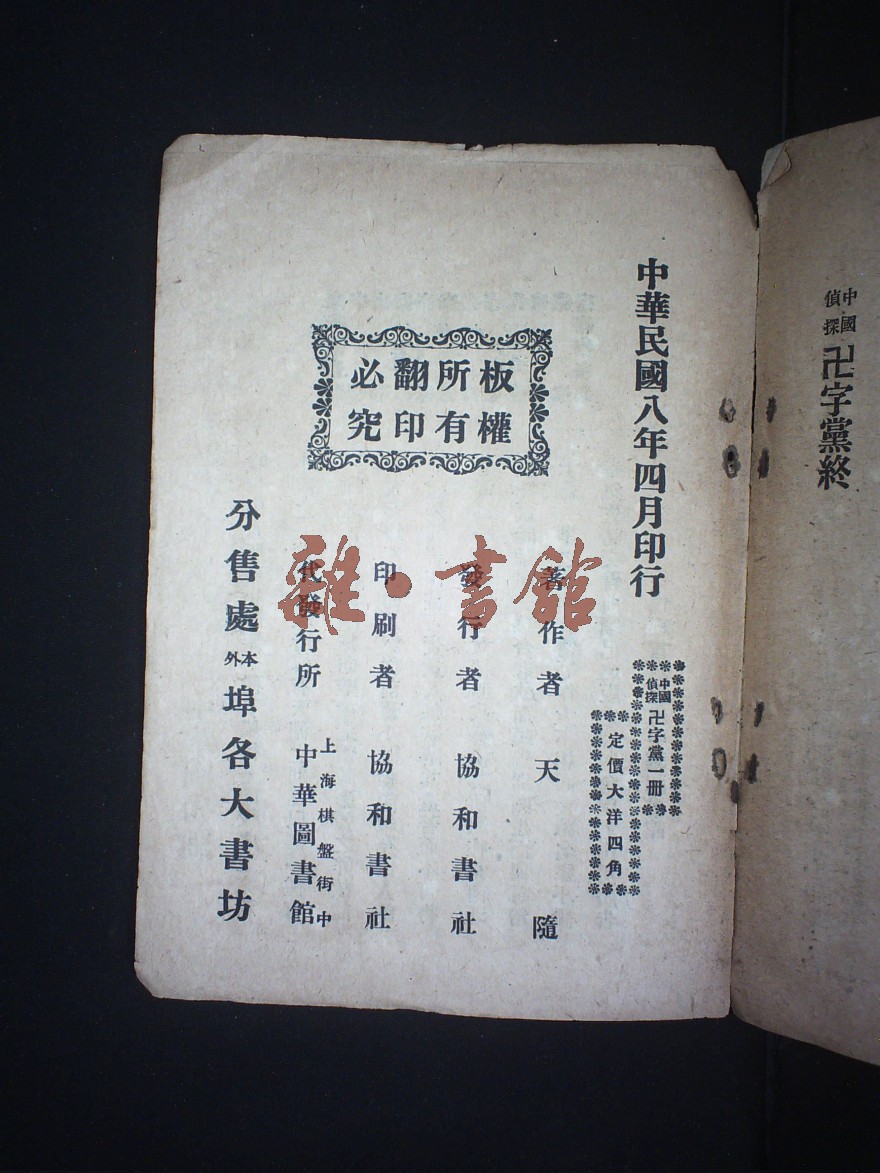 中國偵探
卍字黨終
中華民國八年四月印行
中國偵探卍字黨一冊
定價大洋四角
板權
所有
翻印
必究
著作者 天隨
發行者 協和書社
印刷者 協和書社
代發行所 上海棋盤街中 中華圖書館
分售處 本外埠各大書坊
雜·書館